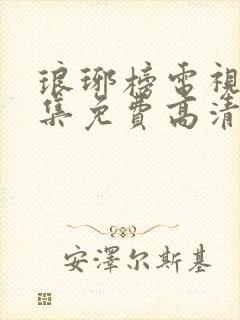 琅琊榜電視
集免費高清
安澤尔斯基